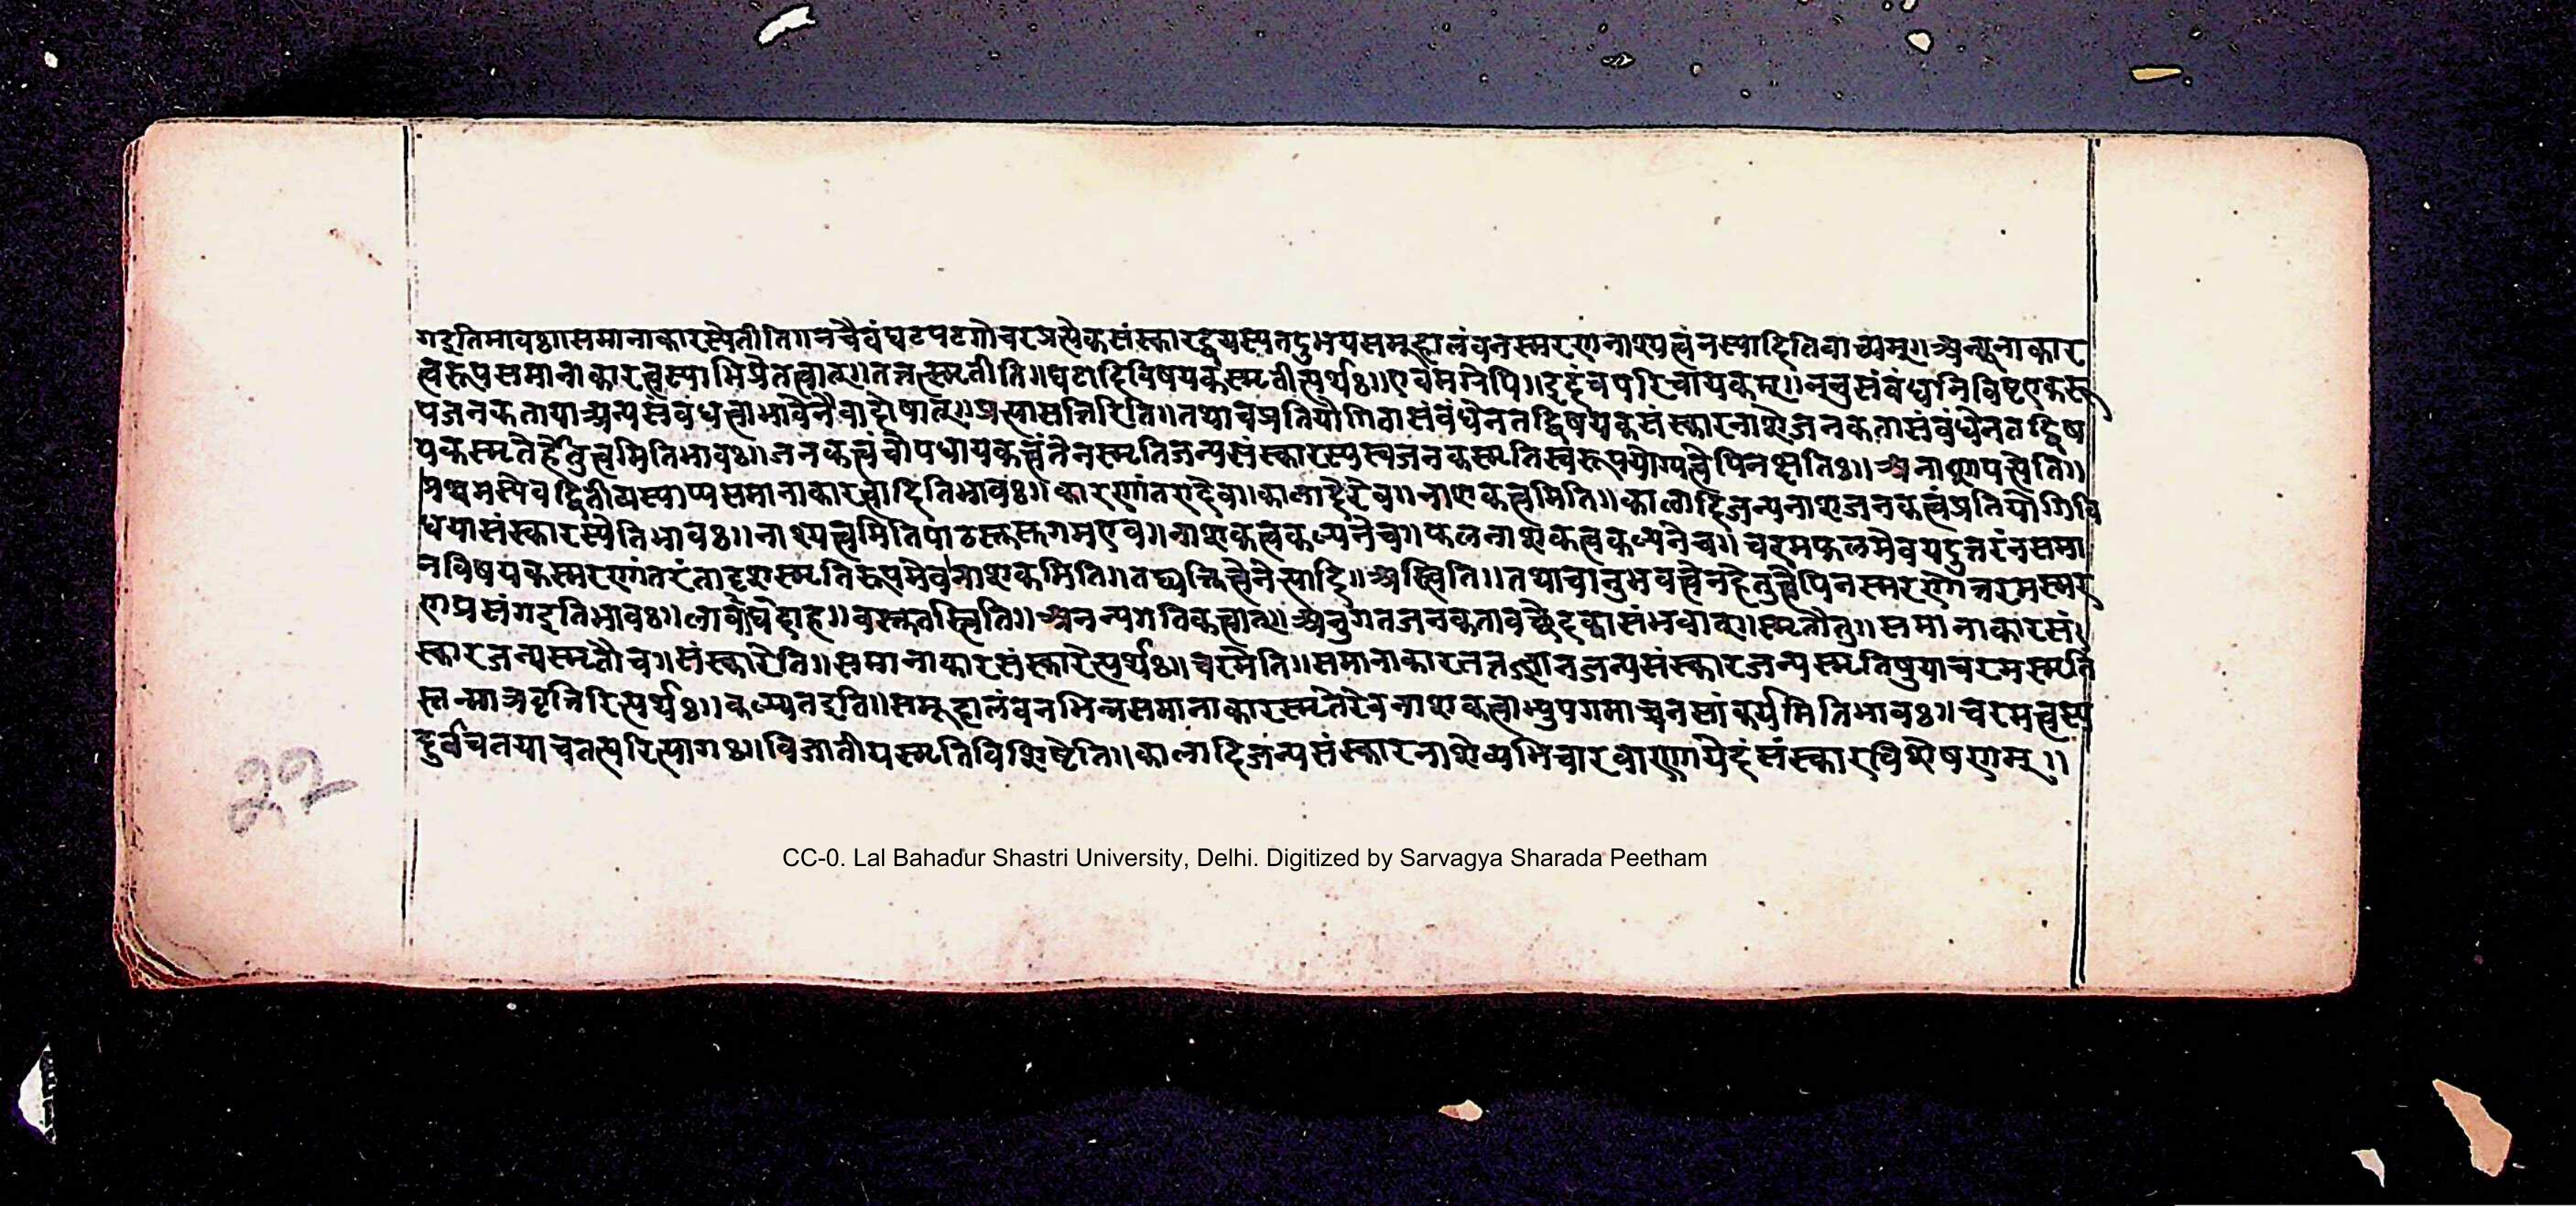 गइतिभावः॥समानाकारस्येतीति॥नचैवंघटपटगोचरप्रत्येकसंस्कारद्वयस्यतदुभयसमूहालंबनस्मरणनाश्यत्वंनस्यादितिवाच्यम्॥अन्यूनाकार
त्वरूपसमानाकारत्वस्याभिप्रेतत्वात्॥तत्तत्स्मृतीति॥घटादिविषयकस्मृतीत्यर्थः॥एवमग्रेपि॥इदंचपरिचायकम्॥ननुसंबंधानिविष्टएकरू
पजनकतायाअन्यसंबंधत्वाभावेनैवादोषात्॥प्रत्यासत्तिरिति॥तथाचप्रतियोगितासंबंधेनतद्विषयकसंस्कारनाशेजनकतासंबंधेनतद्विष
यकस्मृतेर्हेतुत्वमितिभावः॥जनकत्वंचोपधायकत्वंतेनस्मृतिजन्यसंस्कारस्यस्वजनकस्मृतिस्वरूपयोग्यत्वेपिनक्षतिः॥अनाशापत्तेति॥
प्रथमस्येवद्वितीयस्याप्यसमानाकारत्वादितिभावः॥कारणांतरादेव॥कालादेरेव॥नाशकत्वमिति॥कालादिजन्यनाशजनकत्वंप्रतियोगिवि
धयासंस्कारस्येतिभावः॥नाश्यत्वमितिपाठस्तुसुगमएव॥नाशकत्वकल्पनेच॥फलनाशकत्वकल्पनेच॥चरमफलमेवयदुत्तरंनसमा
नविषयकस्मरणांतरंतादृशस्मृतिरूपमेवनाशकमिति॥तद्व्यक्तित्वेनेत्यादि॥अस्त्विति॥तथाचानुभवत्वेनहेतुत्वेपिनस्मरणोत्तरमस्मर
णप्रसंगइतिभावः॥लाघवादाह॥वस्तुतस्त्विति॥अनन्यगतिकत्वात्॥अनुगतजनकतावच्छेदकासंभवात्॥स्मृतौतु॥समानाकारसं
स्कारजन्यस्मृतौच॥संस्कारेति॥समानाकारसंस्कारेत्यर्थः॥चरमेति॥समानाकारतत्तज्ज्ञानजन्यसंस्कारजन्यस्मृतिषुयाचरमस्मृति
स्तन्मात्रवृत्तिरित्यर्थः॥कल्प्यतइति॥समूहालंबनभिन्नसमानाकारस्मृतेरेवनाशकत्वाभ्युपगमाच्चनसांकर्यमितिभावः॥चरमत्वस्य
दुर्वचतयाचतत्परित्यागः॥विजातीयस्मृतिविशिष्टेति॥कालादिजन्यसंस्कारनाशेव्यभिचारवारणायेदंसंस्कारविशेषणम्॥
२२
CC-0. Lal Bahadur Shastri University, Delhi. Digitized by Sarvagya Sharada Peetham